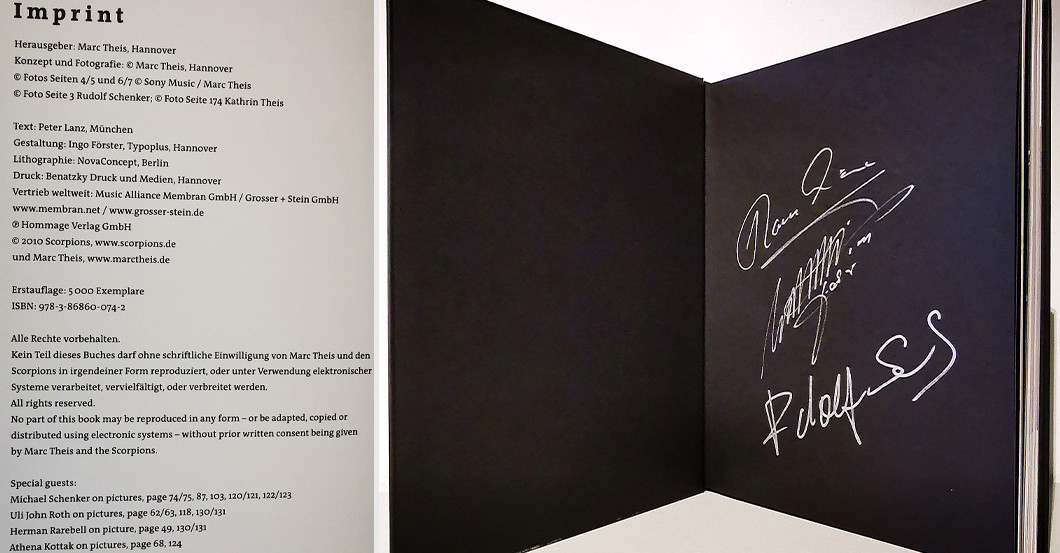 Imprint
Herausgeber: Marc Theis, Hannover
Konzept und Fotografie: © Marc Theis, Hannover
© Fotos Seiten 4/5 und 6/7 © Sony Music / Marc Theis
© Foto Seite 3 Rudolf Schenker; © Foto Seite 174 Kathrin Theis
Text: Peter Lanz, München
Gestaltung: Ingo Förster, Typoplus, Hannover
Lithographie: NovaConcept, Berlin
Druck: Benatzky Druck und Medien, Hannover
Vertrieb weltweit: Music Alliance Membran GmbH / Grosser + Stein GmbH
www.membran.net / www.grosser-stein.de
℗ Hommage Verlag GmbH
© 2010 Scorpions, www.scorpions.de
und Marc Theis, www.marctheis.de
Erstauflage: 5 000 Exemplare
ISBN: 978-3-86860-074-2
Alle Rechte vorbehalten.
Kein Teil dieses Buches darf ohne schriftliche Einwilligung von Marc Theis und den
Scorpions in irgendeiner Form reproduziert, oder unter Verwendung elektronischer
Systeme verarbeitet, vervielfältigt, oder verbreitet werden.
All rights reserved.
No part of this book may be reproduced in any form – or be adapted, copied or
distributed using electronic systems – without prior written consent being given
by Marc Theis and the Scorpions.
Special guests:
Michael Schenker on pictures, page 74/75, 87, 103, 120/121, 122/123
Uli John Roth on pictures, page 62/63, 118, 130/131
Herman Rarebell on picture, page 49, 130/131
Athena Kottak on pictures, page 68, 124